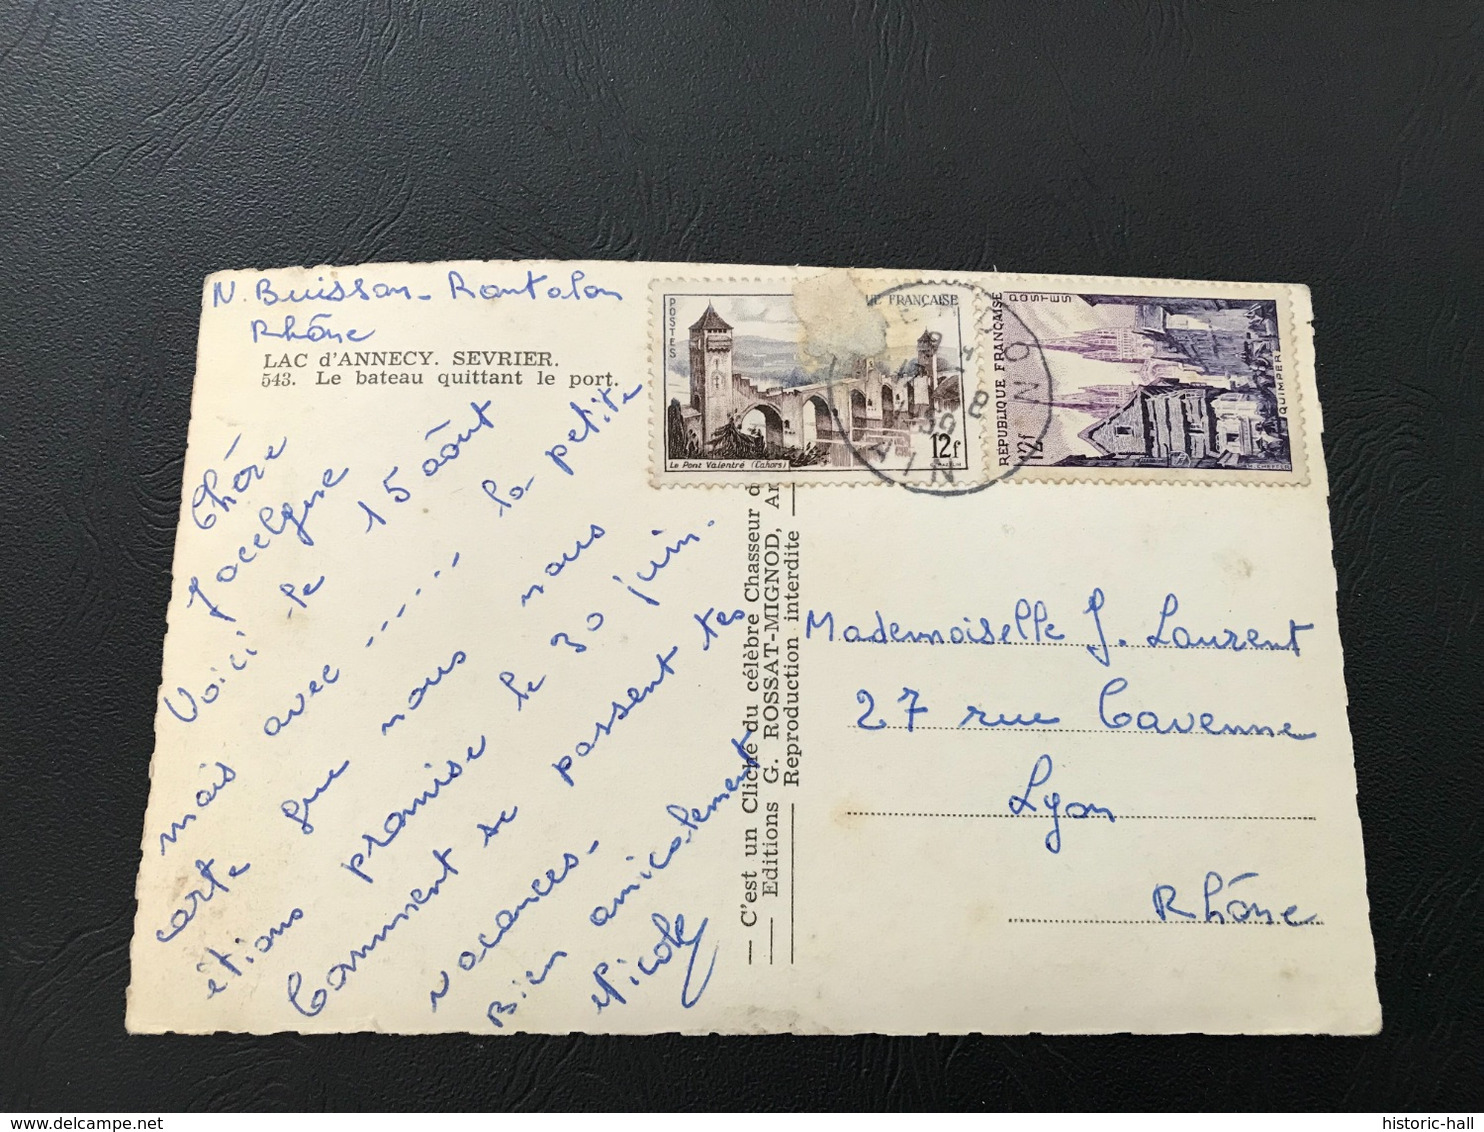 N. Buisson - Rontalon
Rhône
LAC d'ANNECY. SEVRIER.
543. Le bateau quittant le port.
Chère
Jocelyne
Voici le 15 août
mais avec ...... la petite
carte que nous nous
étions promise le 30 juin.
Comment se passent tes
vacances.
Bien amicalement
Nicole
C'est un Cliché du célèbre Chasseur d
Editions G. ROSSAT-MIGNOD, A
Reproduction interdite
POSTES
UE FRANÇAISE
12f
Le Pont Valentré (Cahors)
REPUBLIQUE FRANÇAISE
POSTES
12f
QUIMPER
Mademoiselle J. Laurent
27 rue Cavenne
Lyon
Rhône
historic-hall